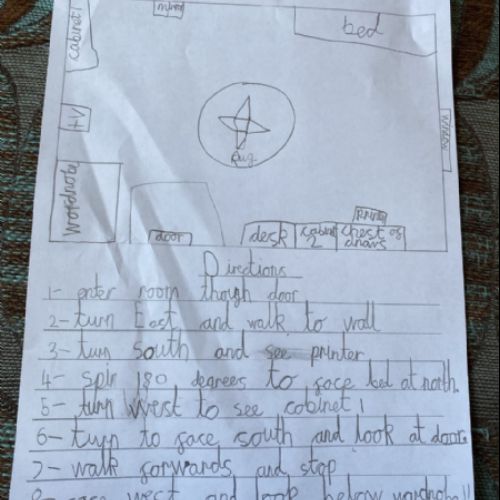 mirror
bed
cabinet 1
TV
window
Rug
wordrobe
door
desk
cabinet 2
printer
chest of draws
Directions
1- enter room though door
2- turn East and walk to wall
3- turn South and see printer
4- spin 180 degrees to face bed at north.
5- turn West to see cabinet 1
6- turn to face south and look at door.
7- walk forwards and stop
8- face west and look below wardrobe!!